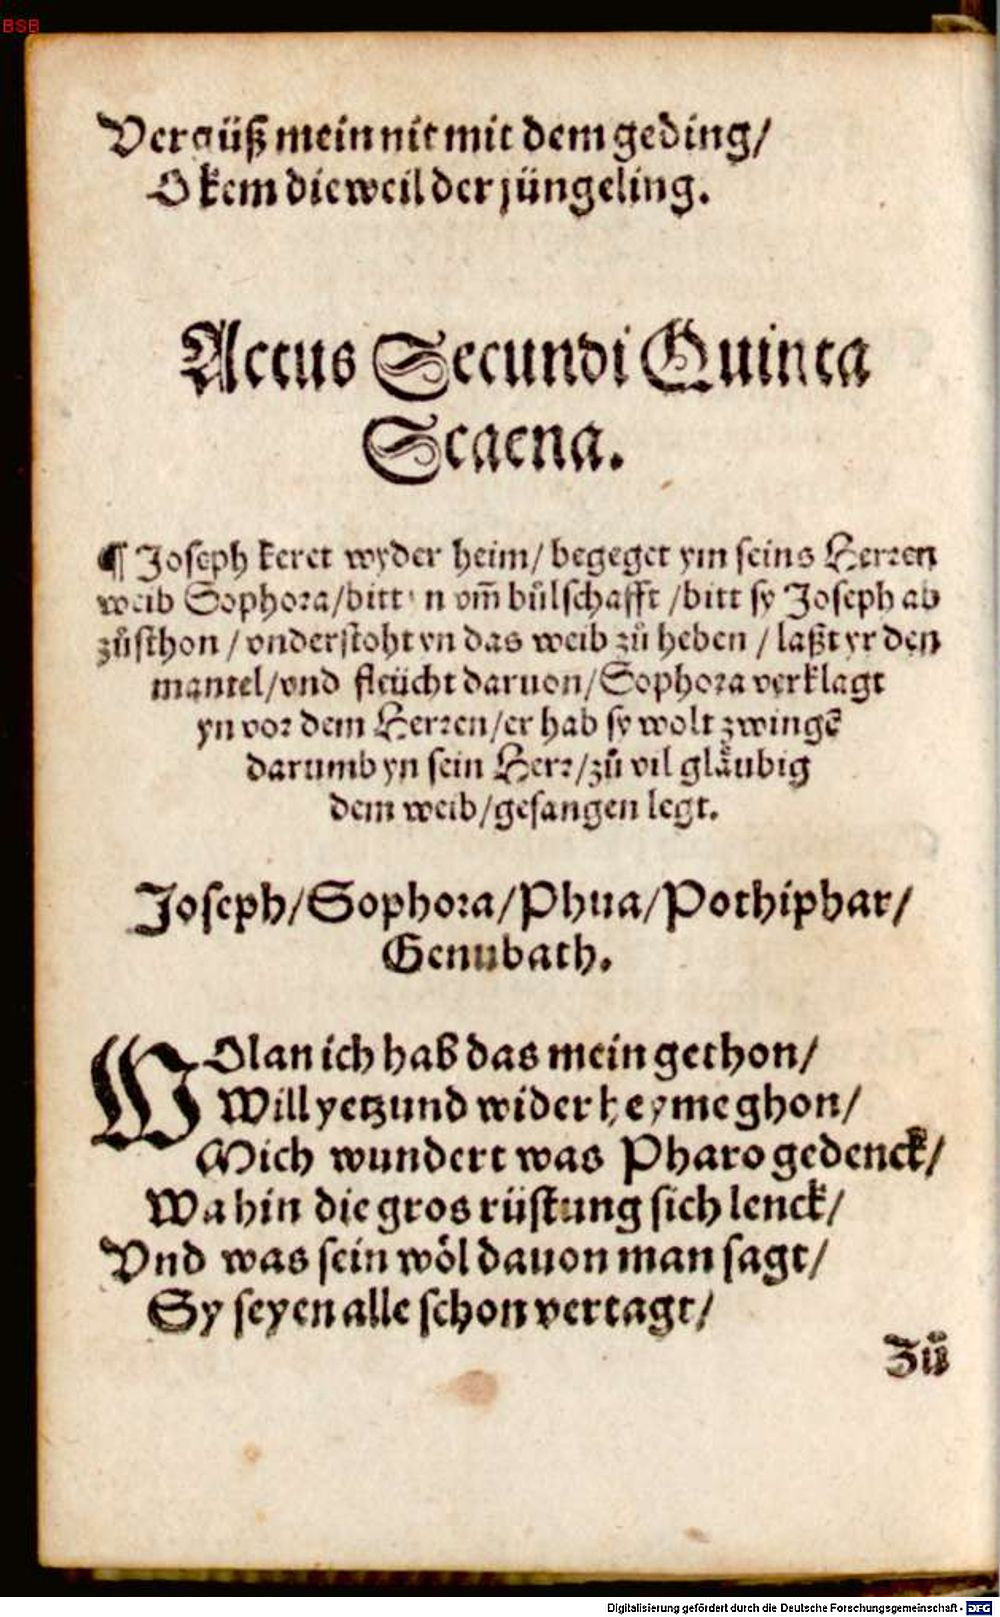 BSB
Vergüß mein nit mit dem geding/
O kem dieweil der jüngeling.
Actus Secundi Quinta
Scaena.
¶ Joseph keret wyder heim/ begeget ym seins Herren
weib Sophora/ bitt n vm̃ bůlschafft / bitt sy Joseph ab
zůsthon / vnderstoht yn das weib zů heben / laßt yr den
mantel/ vnd fleücht daruon/ Sophora verklagt
yn vor dem Herren/ er hab sy wolt zwingē
darumb yn sein Herr/ zů vil gläubig
dem weib/ gefangen legt.
Joseph/ Sophora/ Phua/ Pothiphar/
Genubath.
WOlan ich hab das mein gethon/
Will yetzund wider heyme ghon/
Mich wundert was Pharo gedenck/
Wa hin die gros rüstung sich lenck/
Vnd was sein wöl dauon man sagt/
Sy seyen alle schon vertagt/
Zů
Digitalisierung gefördert durch die Deutsche Forschungsgemeinschaft - DFG